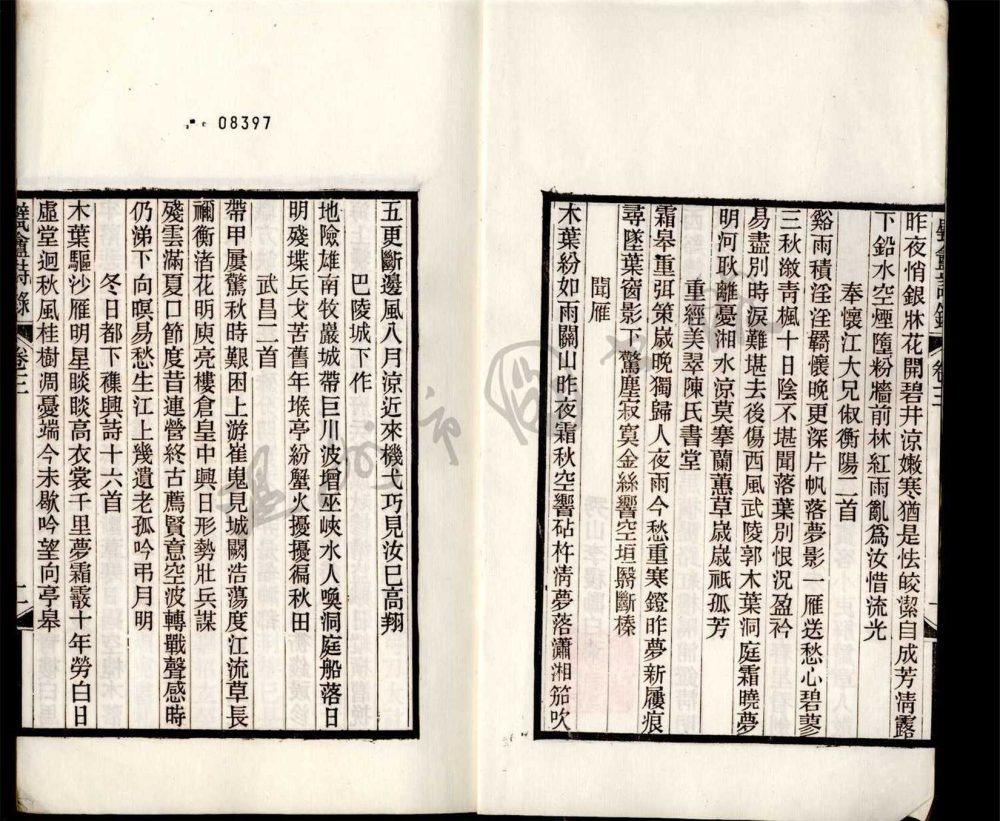 昨夜悄銀牀花開碧井涼嫩寒猶是怯皎潔自成芳情露
下鉛水空煙墮粉牆前林紅雨亂爲汝惜流光
奉懷江大兄俶衡陽二首
谿雨積淫淫羇懷晚更深片帆落夢影一雁送愁心碧蓼
三秋潋青楓十日陰不堪聞落葉別恨況盈衿
易盡別時淚難堪去後傷西風武陵郭木葉洞庭霜曉夢
明河耿離憂湘水涼莫搴蘭蕙草歲歲祇孤芳
重經美翠陳氏書堂
霜皋重弭策歲晚獨歸人夜雨今愁重寒鐙昨夢新屨痕
尋墜葉窗影下驚塵寂寞金絲響空垣翳斷榛
聞雁
木葉紛如雨關山昨夜霜秋空響砧杵淸夢落瀟湘笳吹
卷三
08397
五更斷邊風八月涼近來機弋巧見汝已高翔
巴陵城下作
地險雄南牧嚴城帶巨川波增巫峽水人喚洞庭船落日
明殘堞兵戈苦舊年堠亭紛蟹火擾擾徧秋田
武昌二首
帶甲屢驚秋時艱困上游崔嵬見城闕浩蕩度江流草長
禰衡渚花明庾亮樓倉皇中興日形勢壯兵謀
殘雲滿夏口節度昔連營終古薦賢意空波轉戰聲感時
仍涕下向暝易愁生江上幾遺老孤吟弔月明
冬日都下雜興詩十六首
木葉驅沙雁明星晱晱高衣裳千里夢霜霰十年勞白日
虛堂迥秋風桂樹凋憂端今未歇吟望向亭皋
詩錄
卷三
二